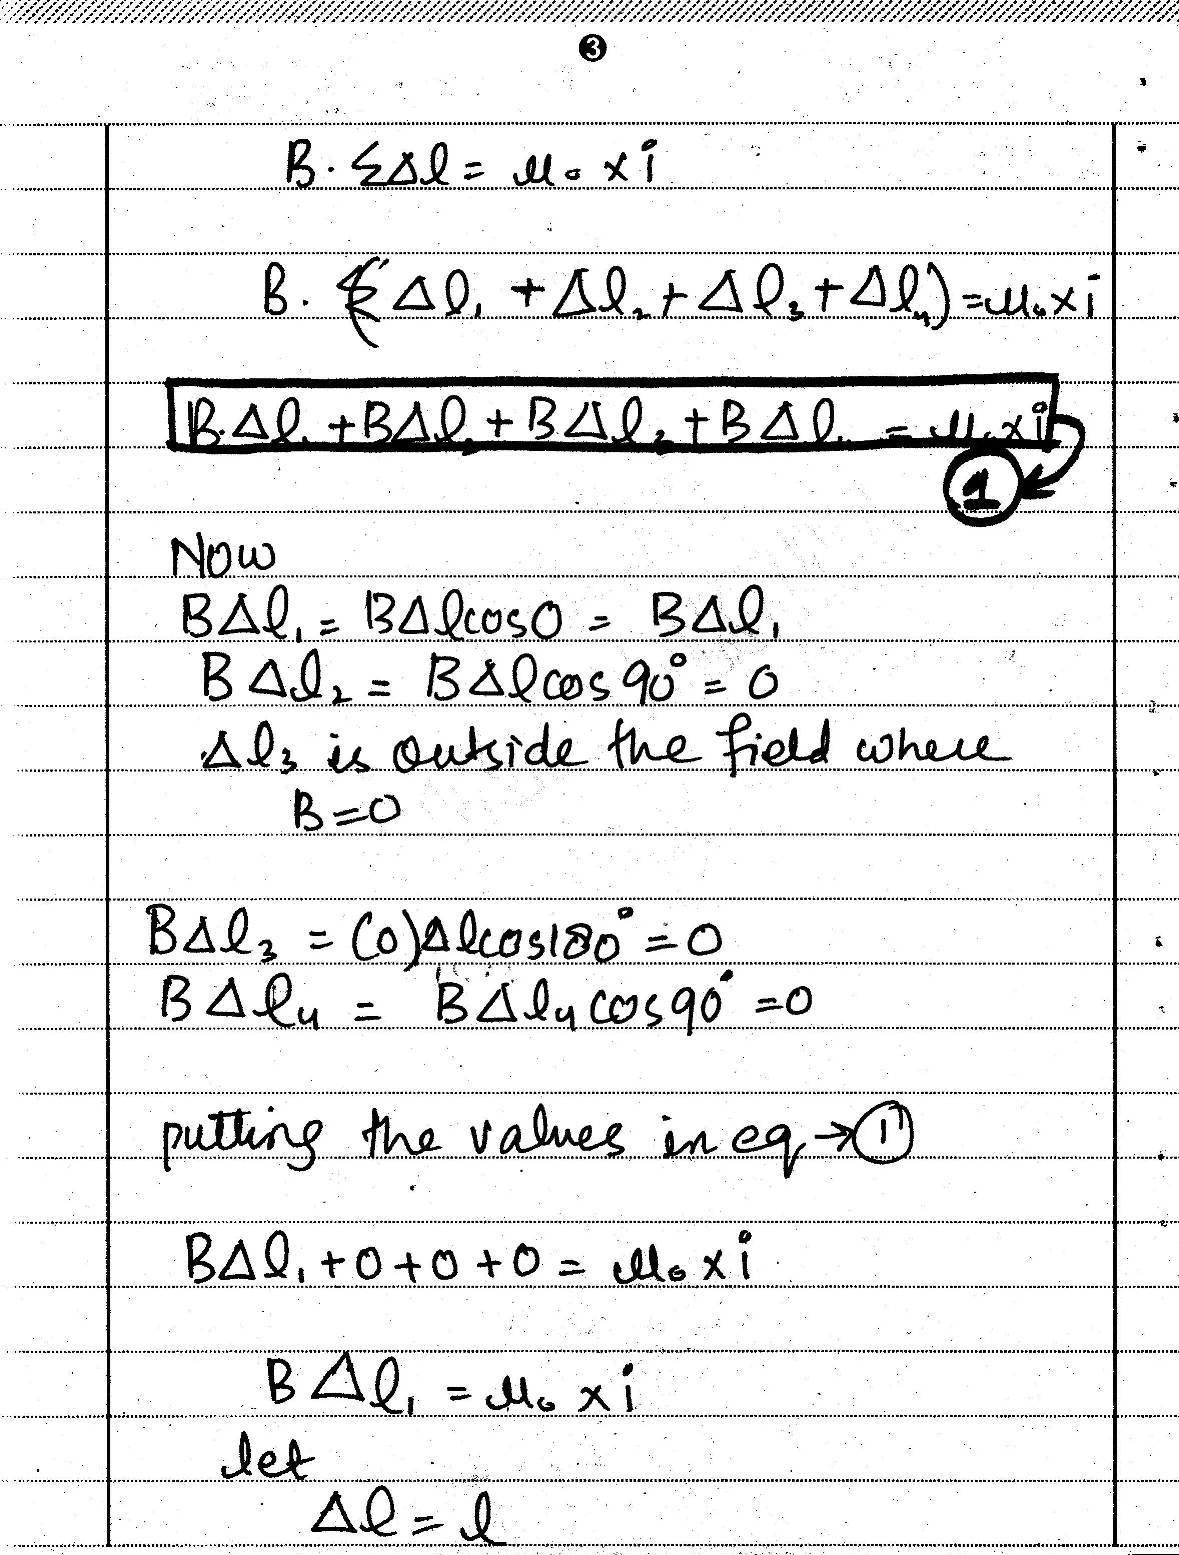 3
B. ΣΔl = μ₀ x i
B. (Δl₁ + Δl₂ + Δl₃ + Δl₄) = μ₀ x i
B.Δl₁ + BΔl₂ + BΔl₃ + BΔl = μ₀ x i
1
Now
BΔl₁ = BΔlcos0 = BΔl₁
BΔl₂ = BΔlcos 90° = 0
Δl₃ is outside the field where
B=0
BΔl₃ = (0)Δlcos180° = 0
BΔl₄ = BΔl₄ cos90° =0
putting the values in eq → 1
BΔl₁ + 0 + 0 + 0 = μ₀ x i
BΔl₁ = μ₀ x i
let
Δl = l